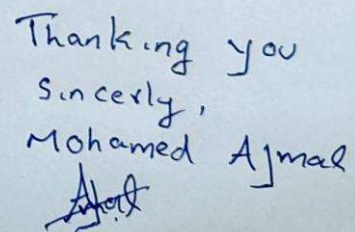 Thanking you
Sincerly,
Mohamed Ajmal